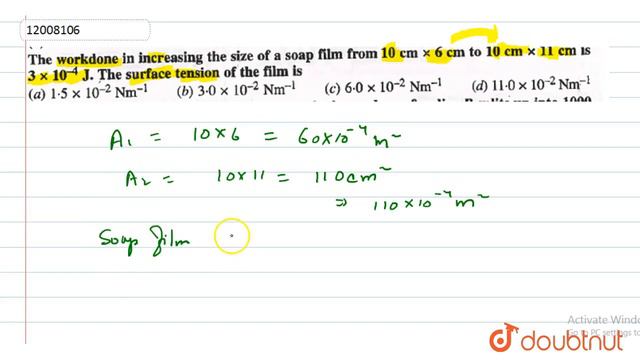 12008106
The workdone in increasing the size of a soap film from 10 cm × 6 cm to 10 cm × 11 cm is
3 × 10⁻⁴ J. The surface tension of the film is
(a) 1·5 × 10⁻² Nm⁻¹ (b) 3·0 × 10⁻² Nm⁻¹ (c) 6·0 × 10⁻² Nm⁻¹ (d) 11·0 × 10⁻² Nm⁻¹
A₁ = 10×6 = 60×10⁻⁴ m²
A₂ = 10×11 = 110 cm²
⇒ 110×10⁻⁴ m²
Soap film
Activate Windo
Go to PC settings to
doubtnut